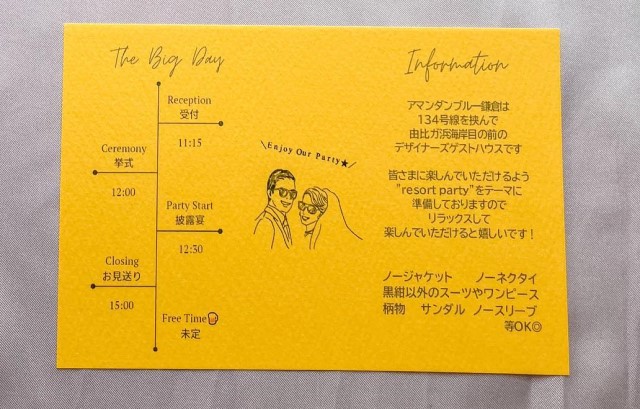 The Big Day
Reception
受付
11:15
Ceremony
挙式
12:00
Party Start
披露宴
12:30
Closing
お見送り
15:00
Free Time
未定
\Enjoy Our Party★/
Information
アマンダンブルー鎌倉は
134号線を挟んで
由比ガ浜海岸目の前の
デザイナーズゲストハウスです
皆さまに楽しんでいただけるよう
"resort party"をテーマに
準備しておりますので
リラックスして
楽しんでいただけると嬉しいです!
ノージャケット ノーネクタイ
黒紺以外のスーツやワンピース
柄物 サンダル ノースリーブ
等OK◎